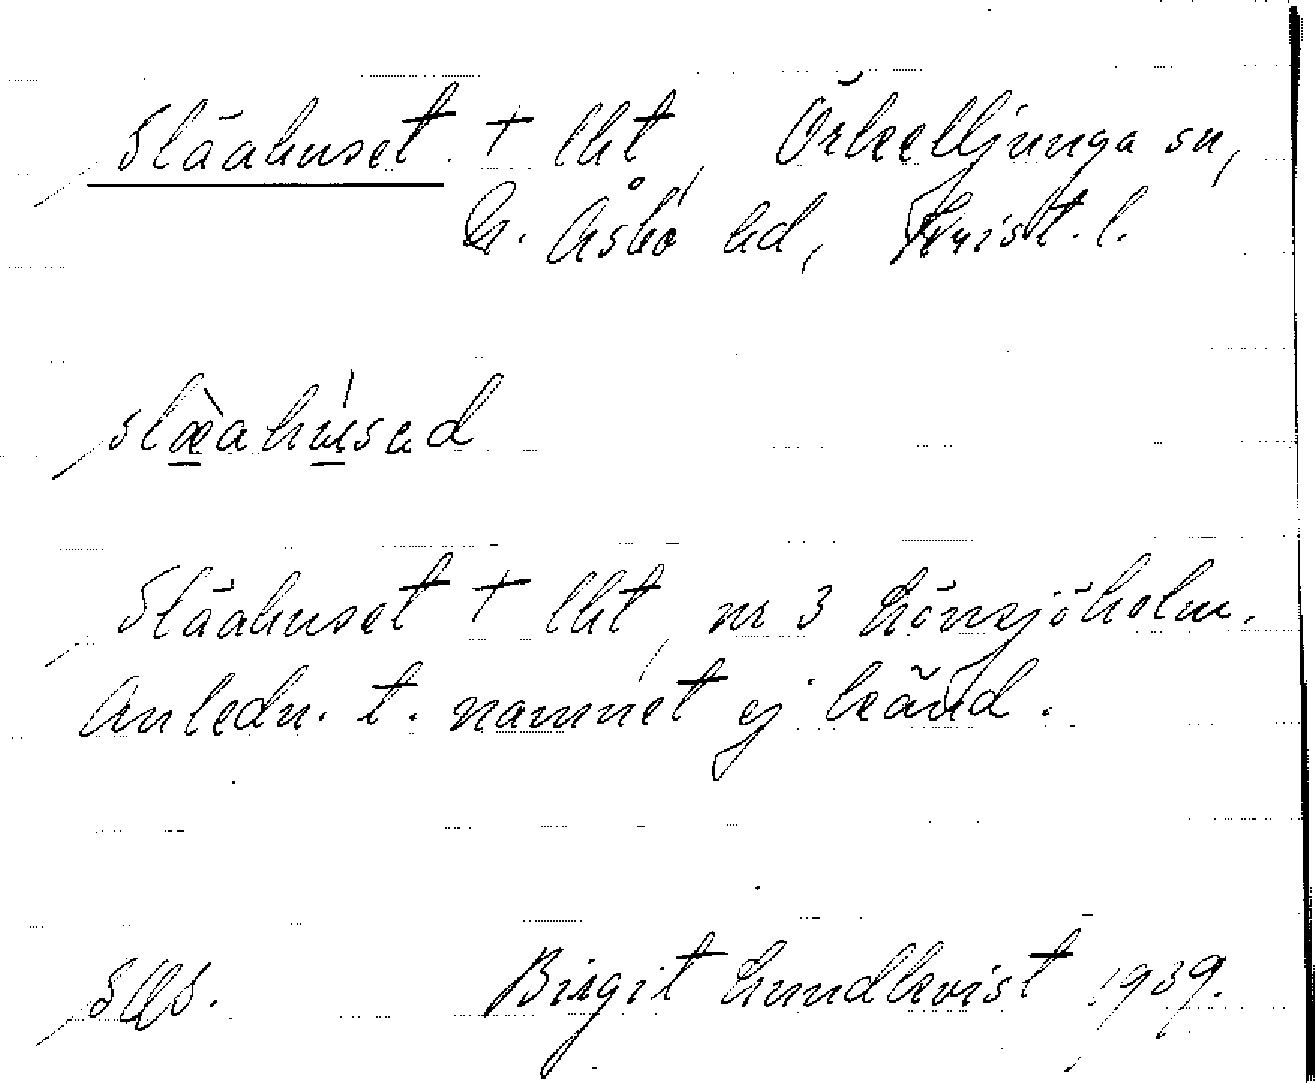 Släahuset † lht, Örkelljunga sn,
N. Åsbo hd, Krist. l.
slæ̀ahúsed
Släahuset † lht, nr 3 Lönsjöholm.
Anledn. t. namnet ej känd.
Birgit Lundkvist 1939.